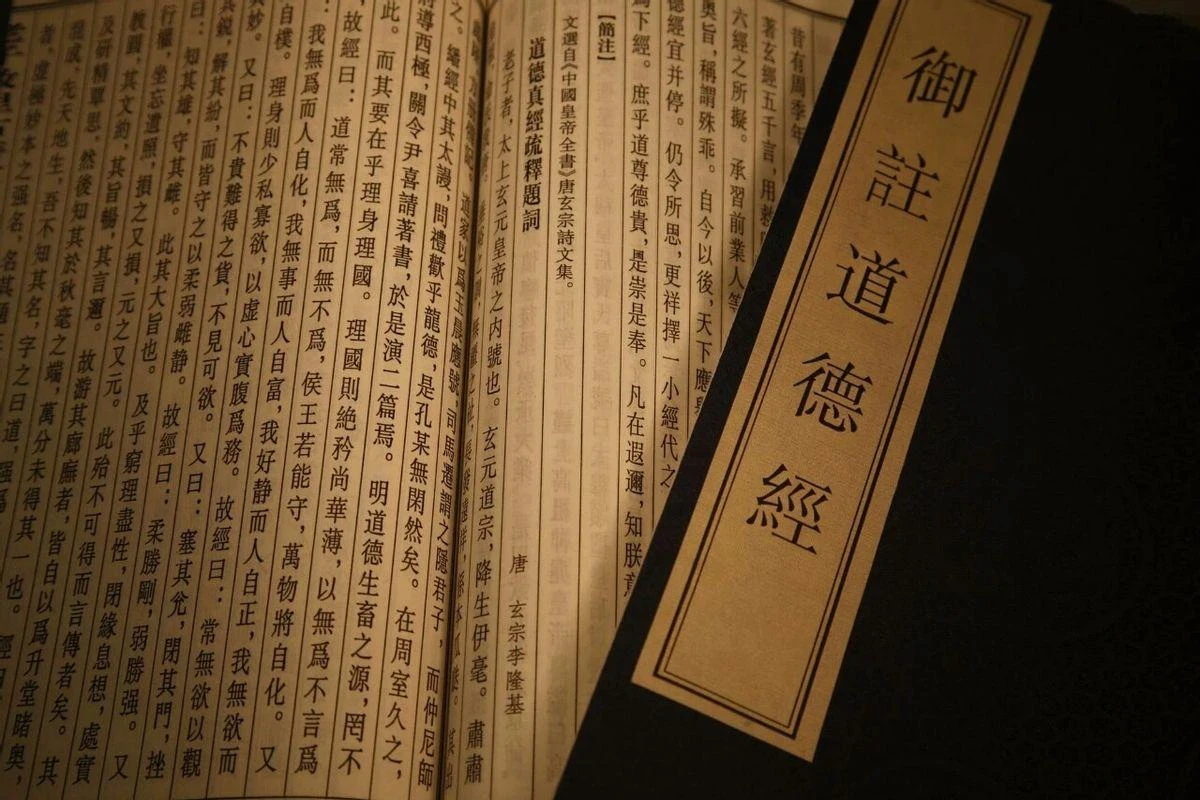 御註道德經
昔有周季年
著玄經五千言,用救
六經之所擬。 承習前業人等
奥旨,稱謂殊乖。 自今以後,天下應
德經宜并停。 仍令所思,更祥擇一小經代之
爲下經。 庶乎道尊德貴,是崇是奉。 凡在遐邇,知朕意
【簡注】
文選自《中國皇帝全書》唐玄宗詩文集。
道德真經疏釋題詞
唐 玄宗李隆基
老子者,太上玄元皇帝之内號也。 玄元道宗,降生伊亳。 肅肅
其出
道家以爲玉晨應號,司馬遷謂之隱君子, 而仲尼師
之。 繙經中其太謾,問禮歎乎龍德,是孔某無閑然矣。 在周室久之,
將導西極,關令尹喜請著書,於是演二篇焉。 明道德生畜之源,罔不
此。 而其要在乎理身理國。 理國則絶矜尚華薄,以無爲不言爲
,故經曰: 道常無爲,而無不爲,侯王若能守,萬物將自化。 又
我無爲而人自化,我無事而人自富,我好静而人自正,我無欲而
自樸。 理身則少私寡欲,以虚心實腹爲務。 故經曰: 常無欲以觀
其妙。 又曰: 不貴難得之貨,不見可欲。 又曰: 塞其兑,閉其門,挫
其鋭,解其紛,而皆守之以柔弱雌静。 故經曰: 柔勝剛,弱勝强。 又
曰: 知其雄,守其雌。 此其大旨也。 及乎窮理盡性,閉緣息想,處實
行權,坐忘遺照,損之又損,元之又元。 此殆不可得而言傳者矣。 其
教圓,其文約,其旨暢,其言邇。 故游其廊廡者,皆自以爲升堂睹奥,
及研精覃思,然後知其於秋毫之端,萬分未得其一也。 經曰
成,先天地生,吾不知其名,字之曰道,强爲
者,虚極妙本之强名,名其